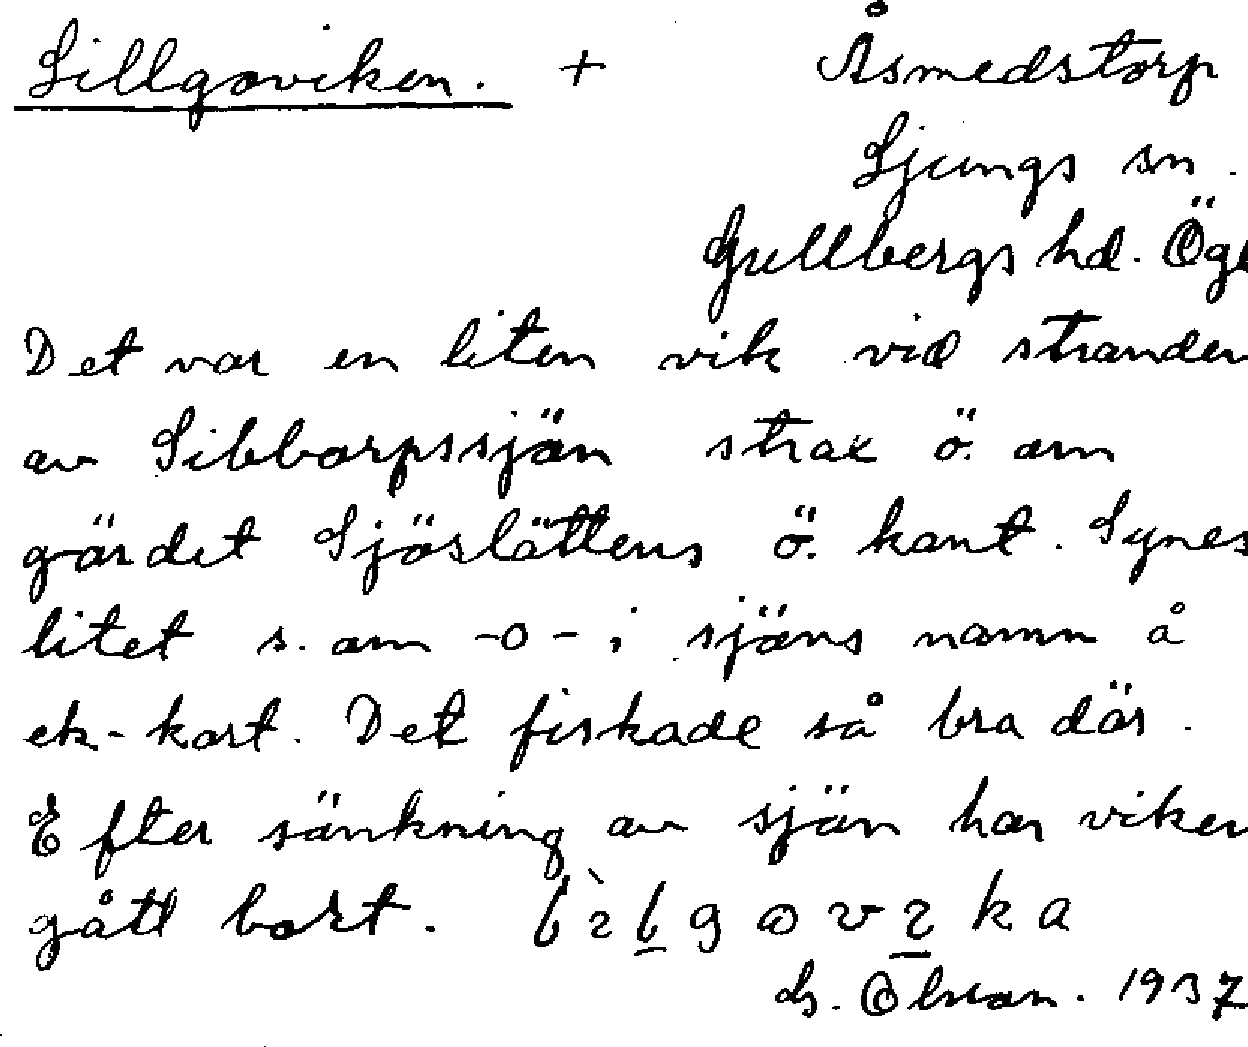 Lillgoviken. + Åsmedstorp
Ljungs sn.
Gullbergs hd. Ög
Det var en liten vik vid stranden
av Sibborpssjön strax ö. om
gärdet Sjöslättens ö. kant. Synes
litet s. om -o- i sjöns namn å
ek-kart. Det fiskade så bra där.
Efter sänkning av sjön har viken
gått bort.
1937